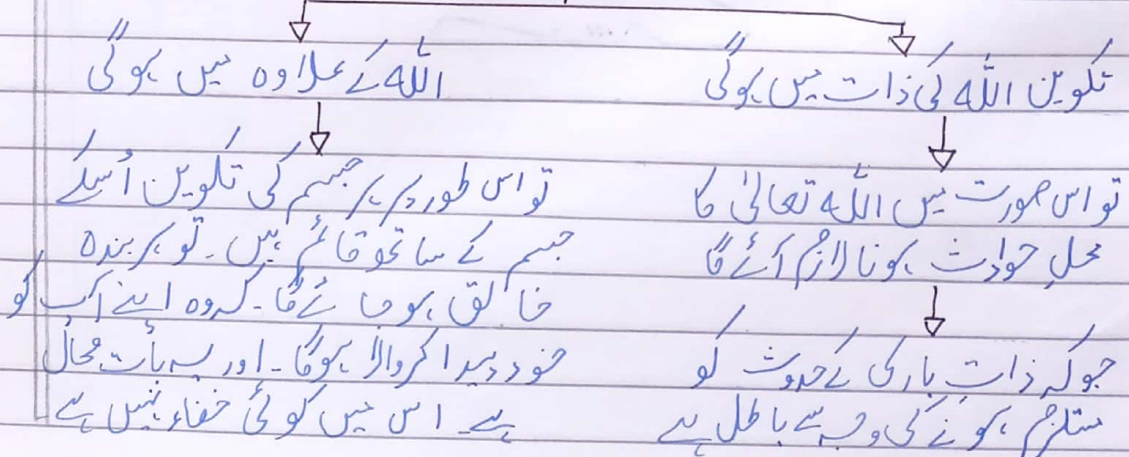 تکوین اللہ کی ذات میں ہوگی
تو اس صورت میں اللہ تعالیٰ کا
محلِ حوادث ہونا لازم آئے گا
جوکہ ذاتِ باری کے حدوث کو
مستلزم ہونے کی وجہ سے باطل ہے
اللہ کے علاوہ میں ہوگی
تو اس طور پر ہر جسم کی تکوین اُسکے
جسم کے ساتھ قائم ہیں۔ تو ہر بندہ
خالق ہوجائے گا۔ کہ وہ اپنے آپ کو
خود پیدا کروالا ہوگا۔ اور یہ بات محال
ہے۔ اس میں کوئی خفاء نہیں ہے